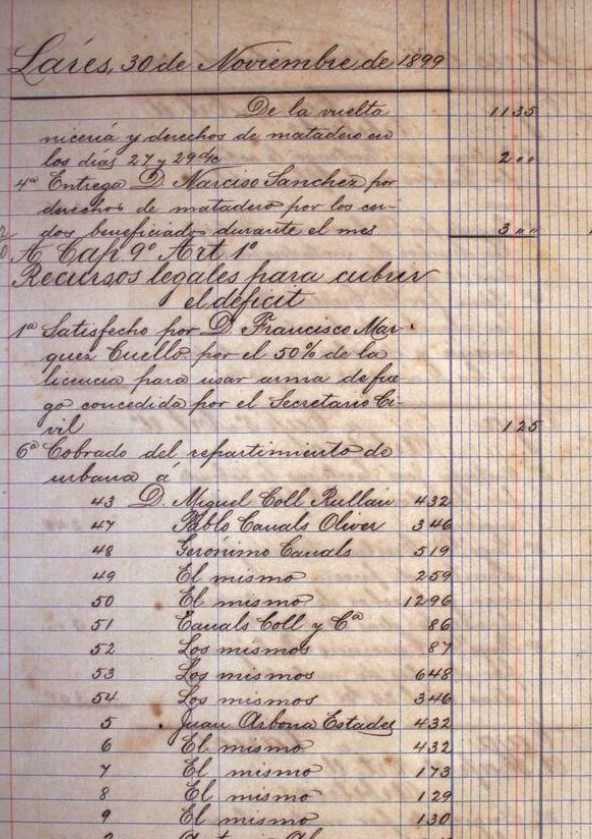 Lares, 30 de Noviembre de 1899
De la vuelta 1135
niceria y derechos de matadero en
los dias 27 y 29 d/c 2 " "
4ª Entrega D. Narciso Sanchez por
derechos de matadero por los cer-
dos beneficiados durante el mes 3 " "
A Cap. 9º Art 1º
Recursos legales para cubrir
el déficit
1ª Satisfecho por D. Francisco Mar-
quez Cuello por el 50% de la
licencia para usar arma de fue
go concedida por el Secretario Ci-
vil 125
6ª Cobrado del repartimiento de
urbana á
43 D. Miguel Coll Rullan 432
47 Pablo Canals Oliver 346
48 Gerónimo Canals 519
49 El mismo 259
50 El mismo 1296
51 Canals Coll y Cª 86
52 Los mismos 87
53 Los mismos 648
54 Los mismos 346
5 Juan Arbona Estades 432
6 El mismo 432
7 El mismo 173
8 El mismo 129
9 El mismo 130